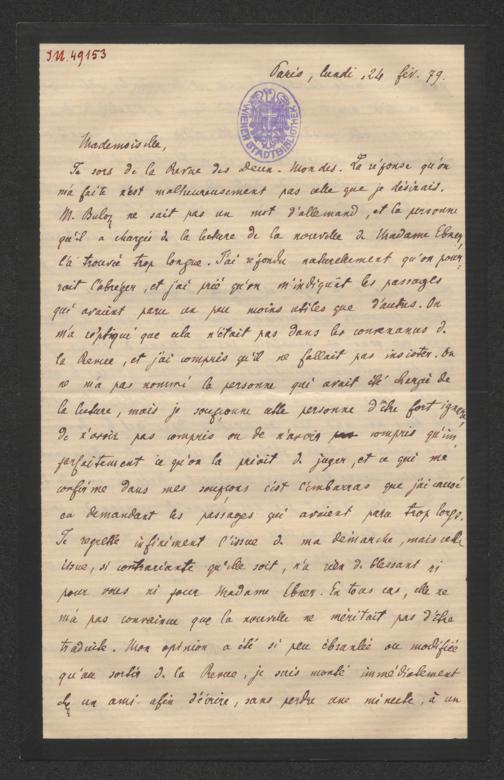 J.N. 49153
Paris, lundi, 24 fév. 79.
WIENER STADTBIBLIOTHEK
Mademoiselle,
Je sors de la Revue des Deux-Mondes. La réponse qu'on
m'a faite n'est malheureusement pas celle que je désirais.
M. Buloz ne sait pas un mot d'allemand, et la personne
qu'il a chargée de la lecture de la nouvelle de Madame Ebner
l'a trouvée trop longue. J'ai répondu naturellement qu'on pour-
rait l'abréger, et j'ai prié qu'on m'indiquât les passages
qui avaient paru un peu moins utiles que d'autres. On
m'a répliqué que cela n'était pas dans les convenances de
la Revue, et j'ai compris qu'il ne fallait pas insister. On
ne m'a pas nommé la personne qui avait été chargée de
la lecture, mais je soupçonne cette personne d'être fort
de n'avoir pas compris ou de n'avoir compris qu'im
parfaitement ce qu'on la priait de juger, et ce qui me
confirme dans mes soupçons c'est l'embarras que j'ai causé
en demandant les passages qui avaient paru trop longs.
Je regrette infiniment l'issue de ma démarche, mais cette
issue, si contrariante qu'elle soit, n'a rien de blessant ni
pour vous ni pour Madame Ebner. En tous cas, elle ne
m'a pas convaincu que la nouvelle ne méritait pas d'être
traduite. Mon opinion a été si peu ébranlée ou modifiée
qu'au sortir de la Revue, je suis monté immédiatement
chez un ami afin d'écrire, sans perdre une minute, à un